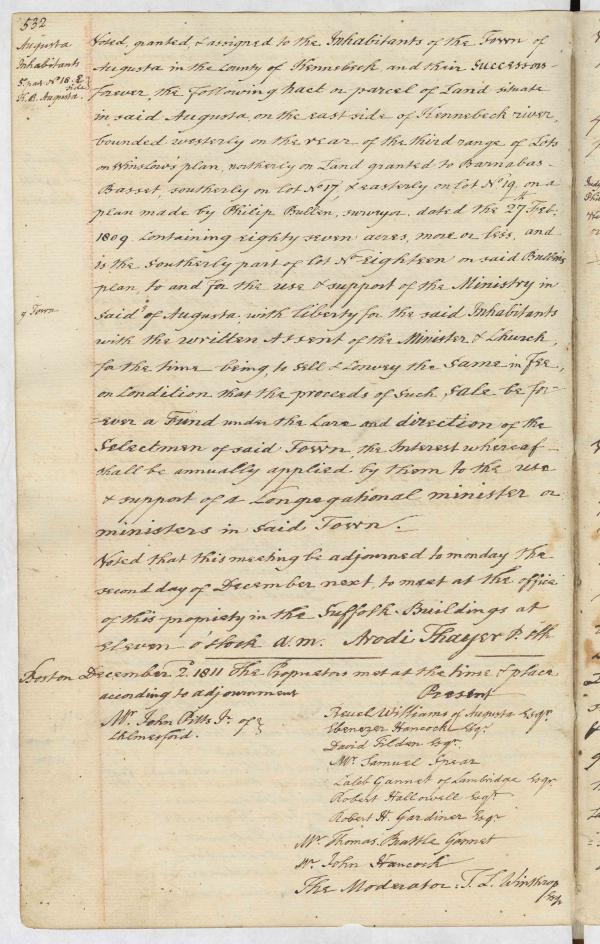 532
Augusta
Inhabitants
Voted, granted, & assigned to the Inhabitants of the Town of
Augusta in the County of Kennebeck, and their Successors
forever, the following tract or parcel of Land situate
in said Augusta, on the east side of Kennebeck river,
bounded westerly on the rear of the third range of Lots
on Winslow's plan, northerly on Land granted to Barnabas
Basset, southerly on Lot No 17, & easterly on Lot No 19, on a
plan made by Philip Bullen, surveyor, dated the 27th Feb.
1809 Containing eighty seven acres, more or less, and
is the Southerly part of Lot No Eighteen on said Bullen's
plan, to and for the use & support of the Ministry in
y Town
said of Augusta, with liberty for the said Inhabitants
with the written Assent of the Minister & Church,
for the time being, to sell & Convey the Same in Fee,
on Condition that the proceeds of such Sale be for-
=ever a Fund under the Care and direction of the
Selectmen of said Town, the Interest whereof
shall be annually applied by them to the use
& support of a Congregational minister or
ministers in said Town.
Voted that this meeting be adjourned to monday the
second day of December next, to meet at the office
of this propriety in the Suffolk Buildings at
Eleven o'Clock A.M. Arodi Thayer P. Clk
Boston December 2d. 1811 The Proprietors met at the time & place
according to adjournment
Present
Mr. John Pitts Jr. of
Chelmsford.
Reuel Williams of Augusta Esqr.
Ebenezer Hancock Esqr.
David Tilden Esqr.
Mr. Samuel Spear
Caleb Gannet of Cambridge Esqr.
Robert Hallowell Esqr.
Robert H. Gardiner Esqr.
Mr. Thomas Brattle Gannet
Mr. John Hancock
The Moderator. T. L. Winthrop
Esqr